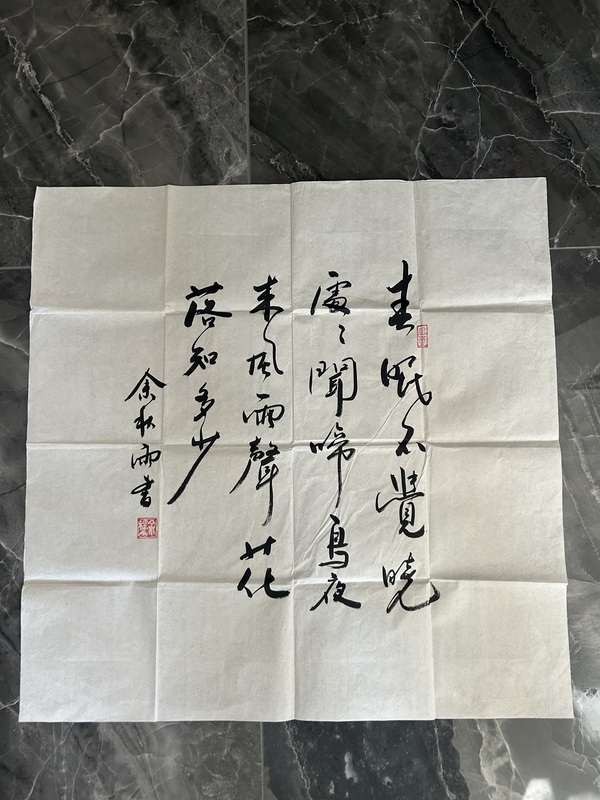 春眠不覺曉
處々聞啼鳥夜
来風雨聲花
落知多少
余秋雨書